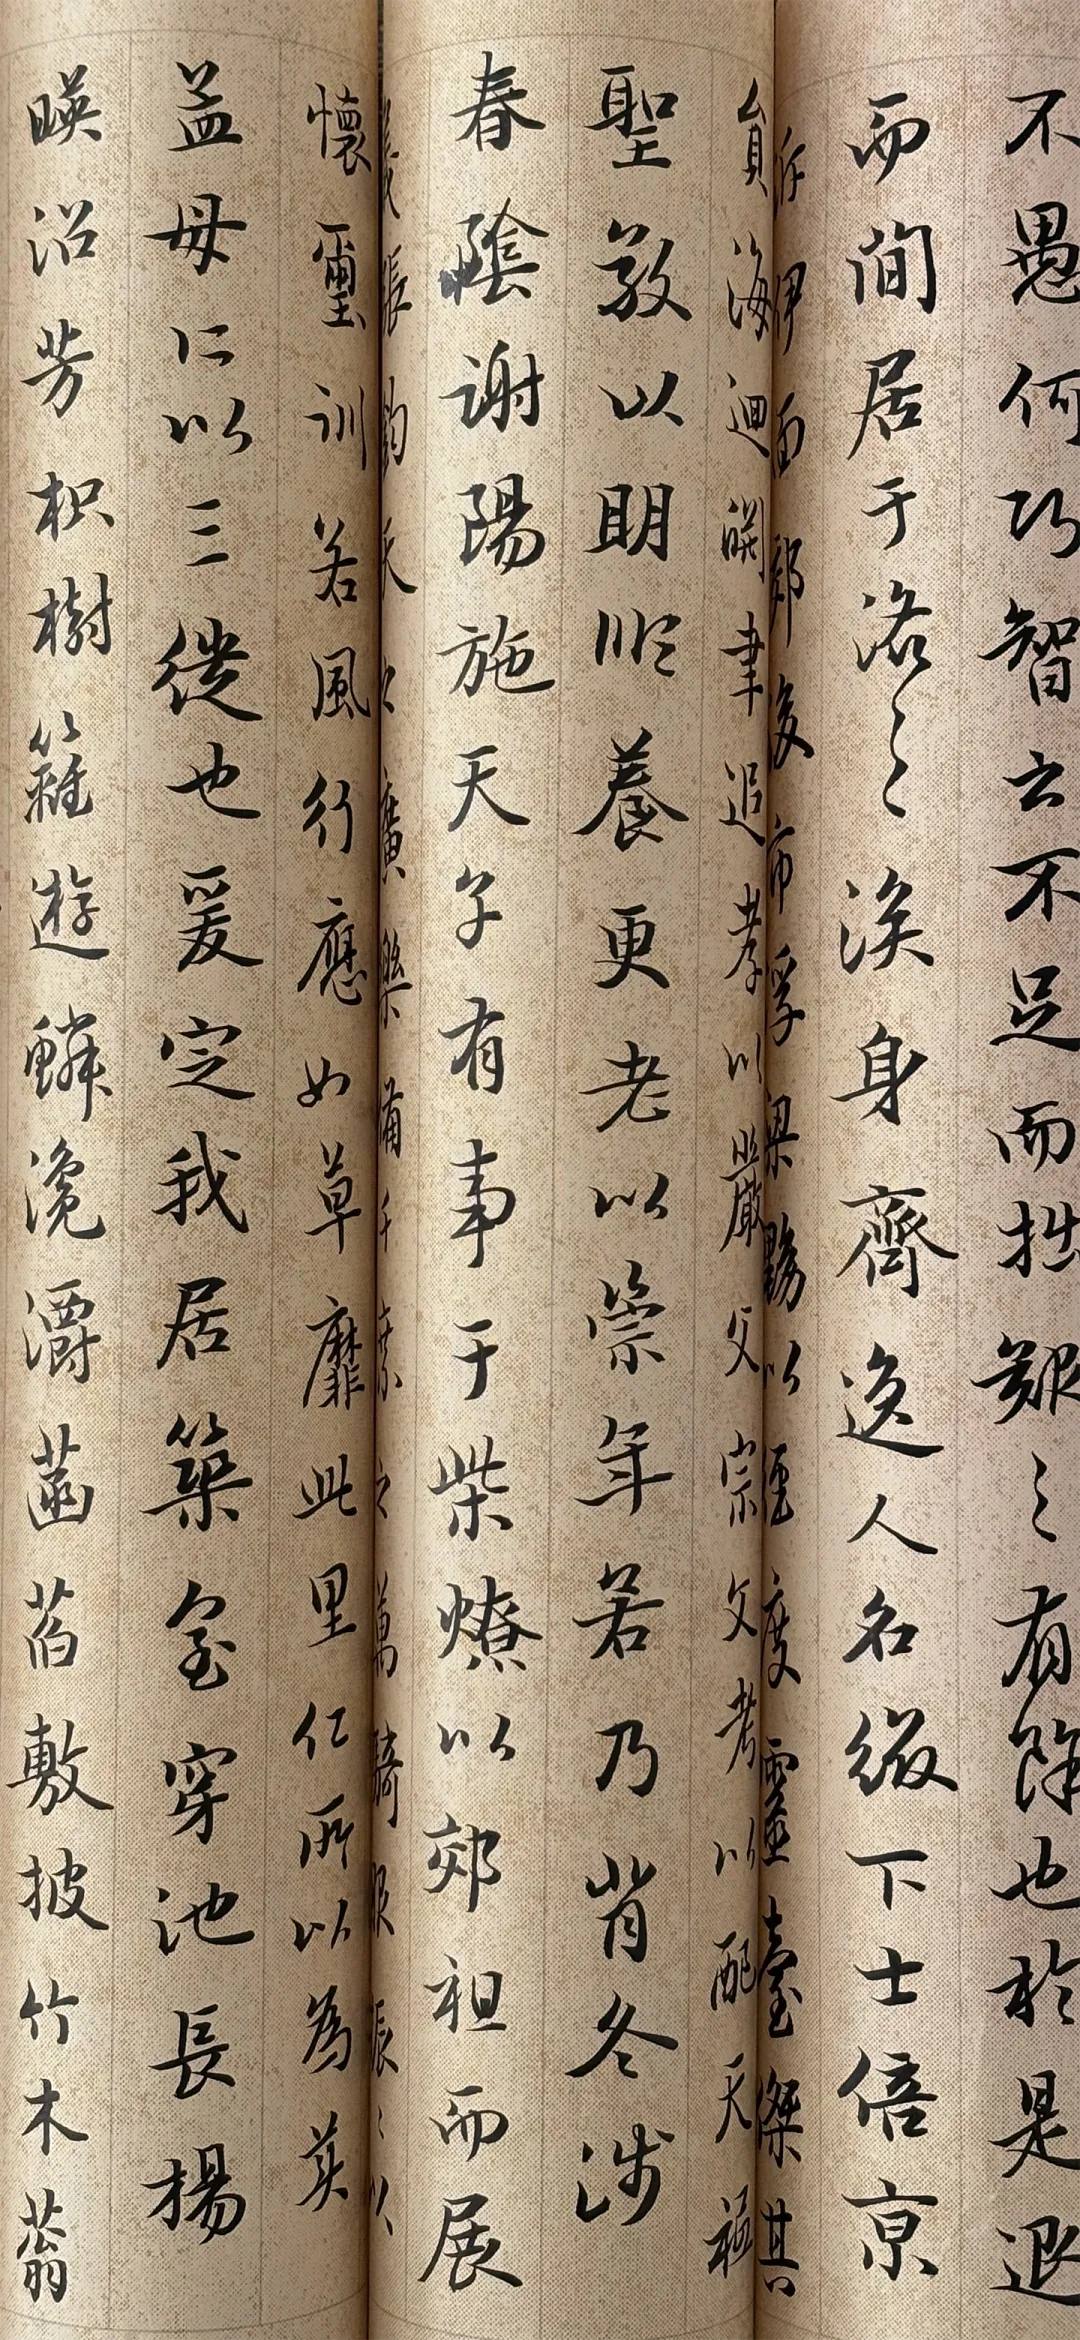 不愚何巧智之不足而拙艱〻有餘也於是退
而閒居于洛〻涘身齊逸人名綴下士倍京
泝伊面郊後市浮梁黝以徑度靈臺傑其
員海迴淵聿追孝以嚴父宗文考以配天祗
聖敬以明順養更老以崇年若乃背冬涉
春陰謝陽施天子有事于柴燎以郊祖而展
義張鈞天之廣樂備千乘之萬騎服振〻以
懷璽訓若風行應如草靡此里仁所以為美
孟母所以三徙也爰定我居築室穿池長楊
暎沼芳枳樹籬遊鱗瀺灂菡萏敷披竹木蓊